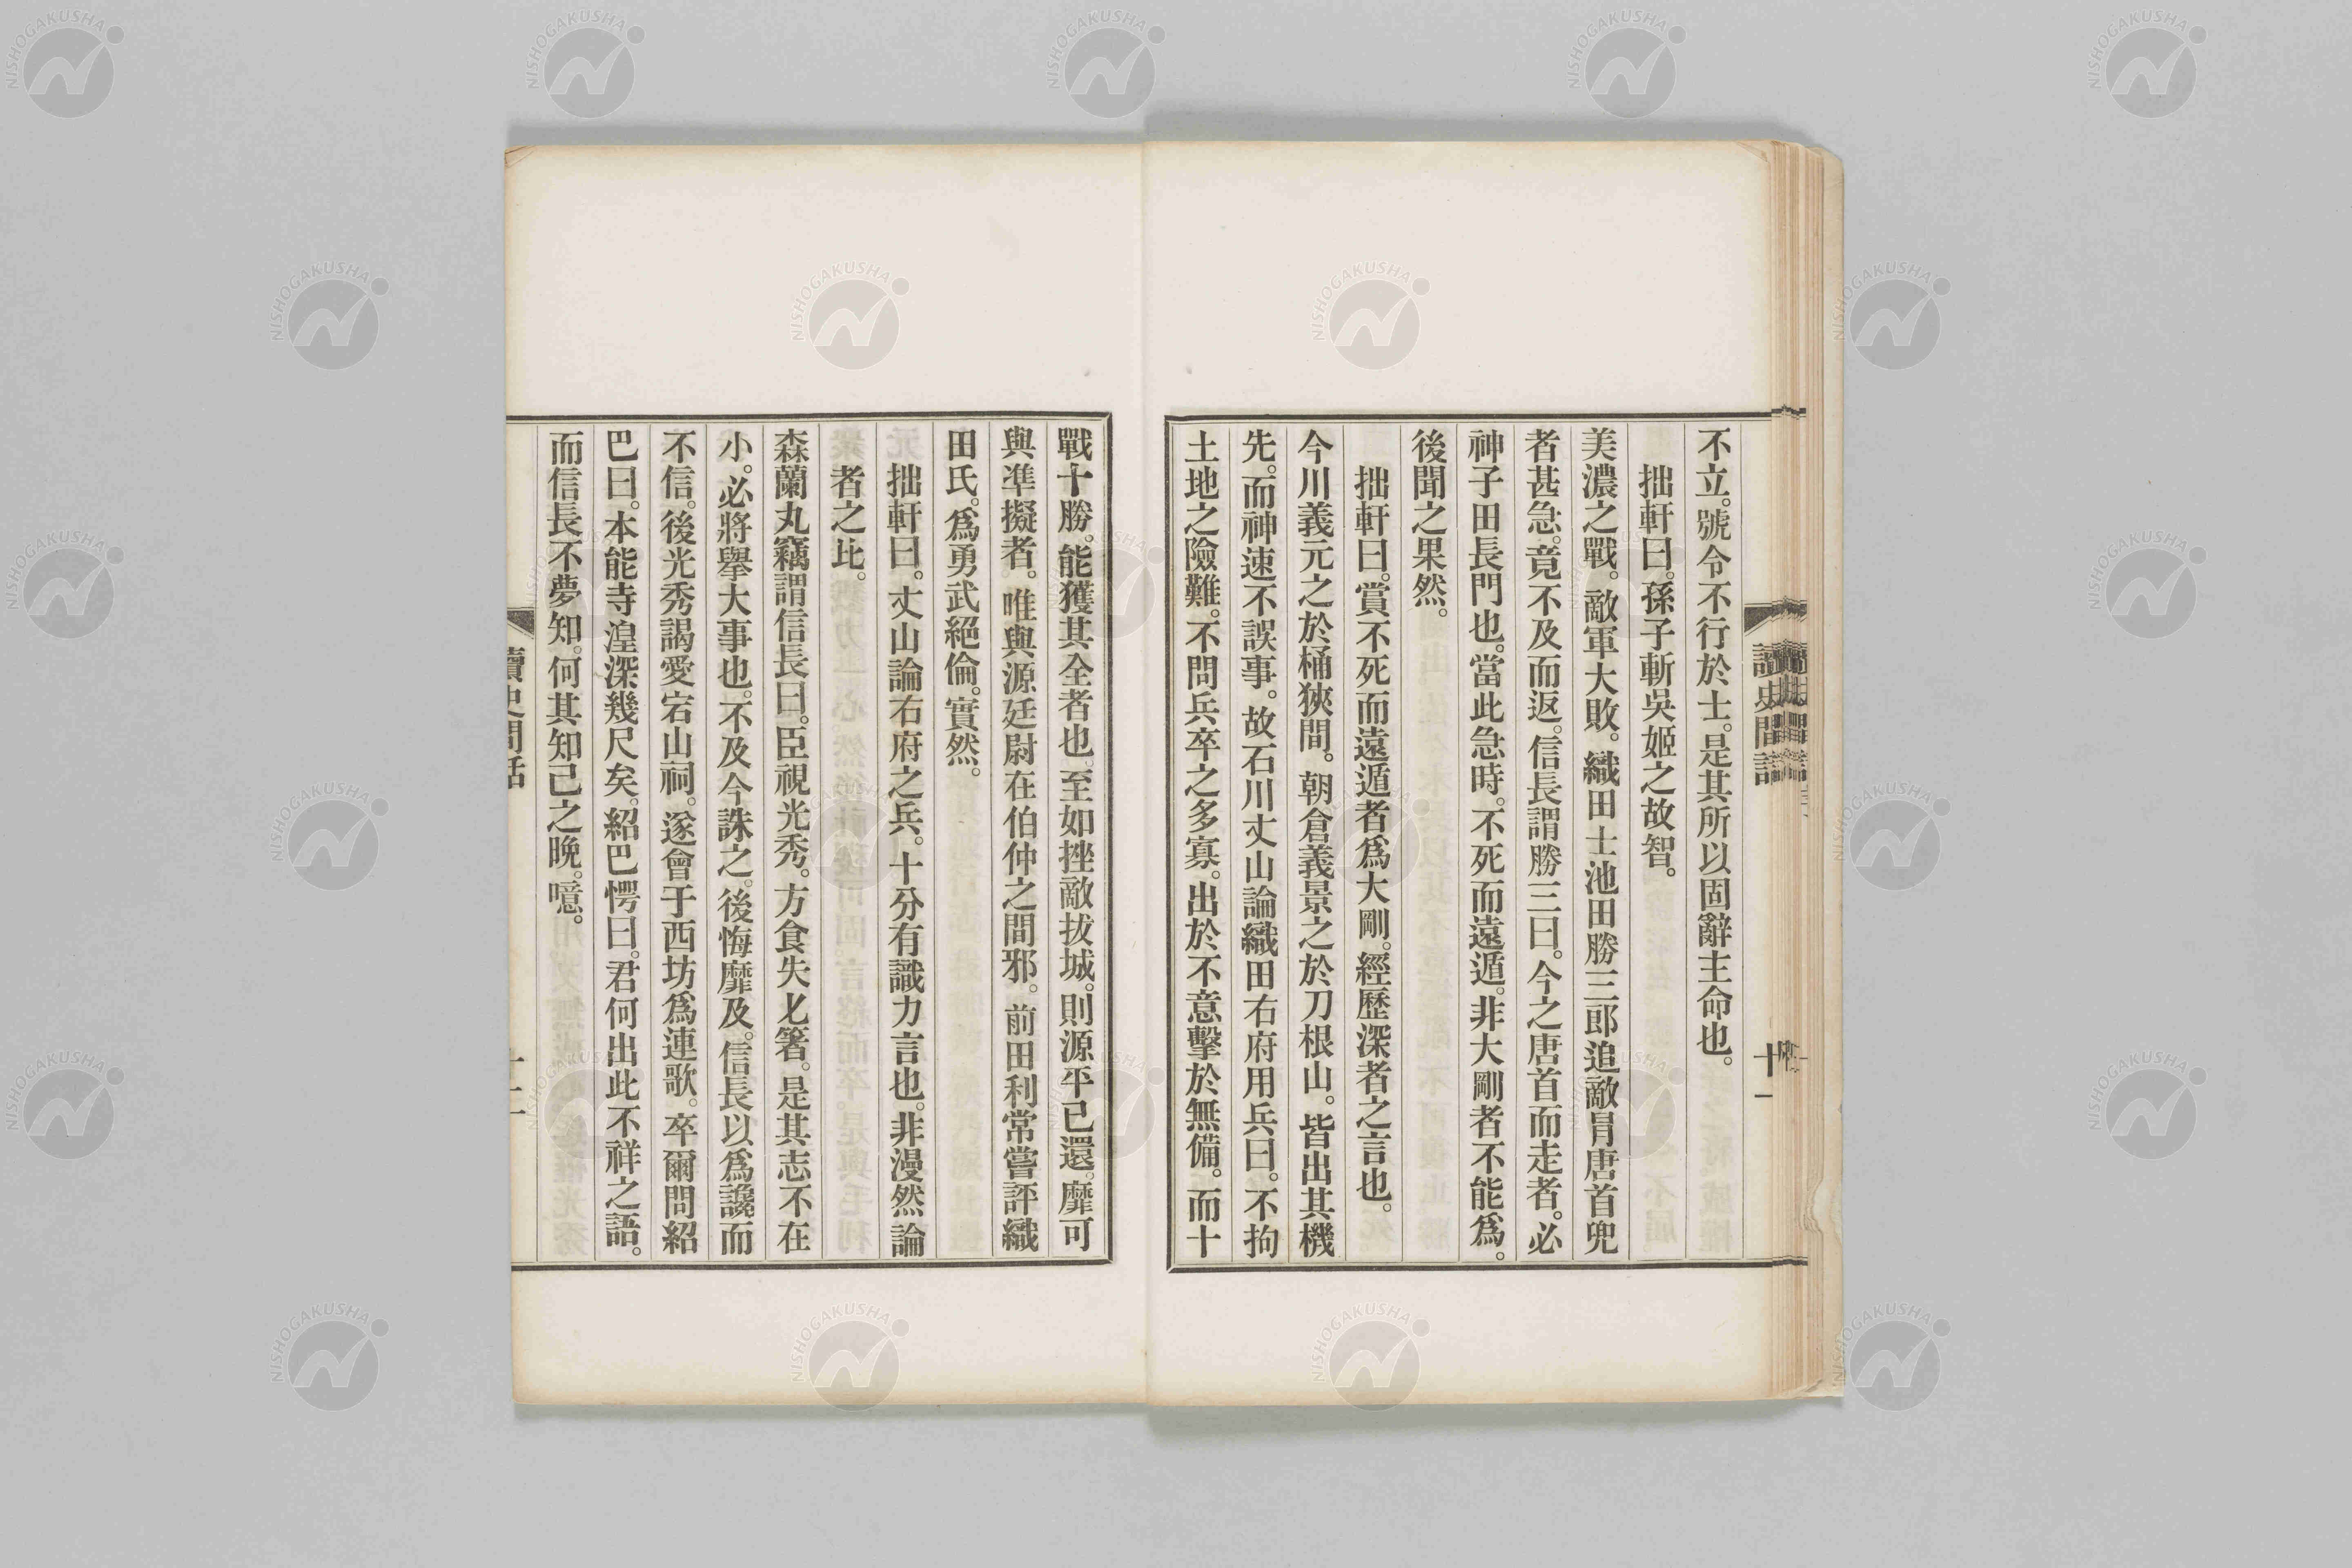 不立。號令不行於士。是其所以固辭主命也。
拙軒曰。孫子斬吳姬之故智。
美濃之戰。敵軍大敗。織田士池田勝三郎追敵冐唐首兜
者甚急。竟不及而返。信長謂勝三曰。今之唐首而走者。必
神子田長門也。當此急時。不死而遠遁。非大剛者不能爲。
後聞之果然。
拙軒曰。賞不死而遠遁者爲大剛。經歷深者之言也。
今川義元之於桶狹間。朝倉義景之於刀根山。皆出其機
先。而神速不誤事。故石川丈山論織田右府用兵曰。不拘
土地之險難。不問兵卒之多寡。出於不意擊於無備。而十
讀史閒話
十一
戰十勝。能獲其全者也。至如挫敵拔城。則源平已還。靡可
與凖擬者。唯與源廷尉在伯仲之間邪。前田利常嘗評織
田氏。爲勇武絕倫。實然。
拙軒曰。丈山論右府之兵。十分有識力言也。非漫然論
者之比。
森蘭丸竊謂信長曰。臣視光秀。方食失匕箸。是其志不在
小。必將擧大事也。不及今誅之。後悔靡及。信長以爲讒而
不信。後光秀謁愛宕山祠。遂會于西坊爲連歌。卒爾問紹
巴曰。本能寺湟深幾尺矣。紹巴愕曰。君何出此不祥之語。
而信長不夢知。何其知己之晚。噫。
讀史閒話
NISHOGAKUSHA